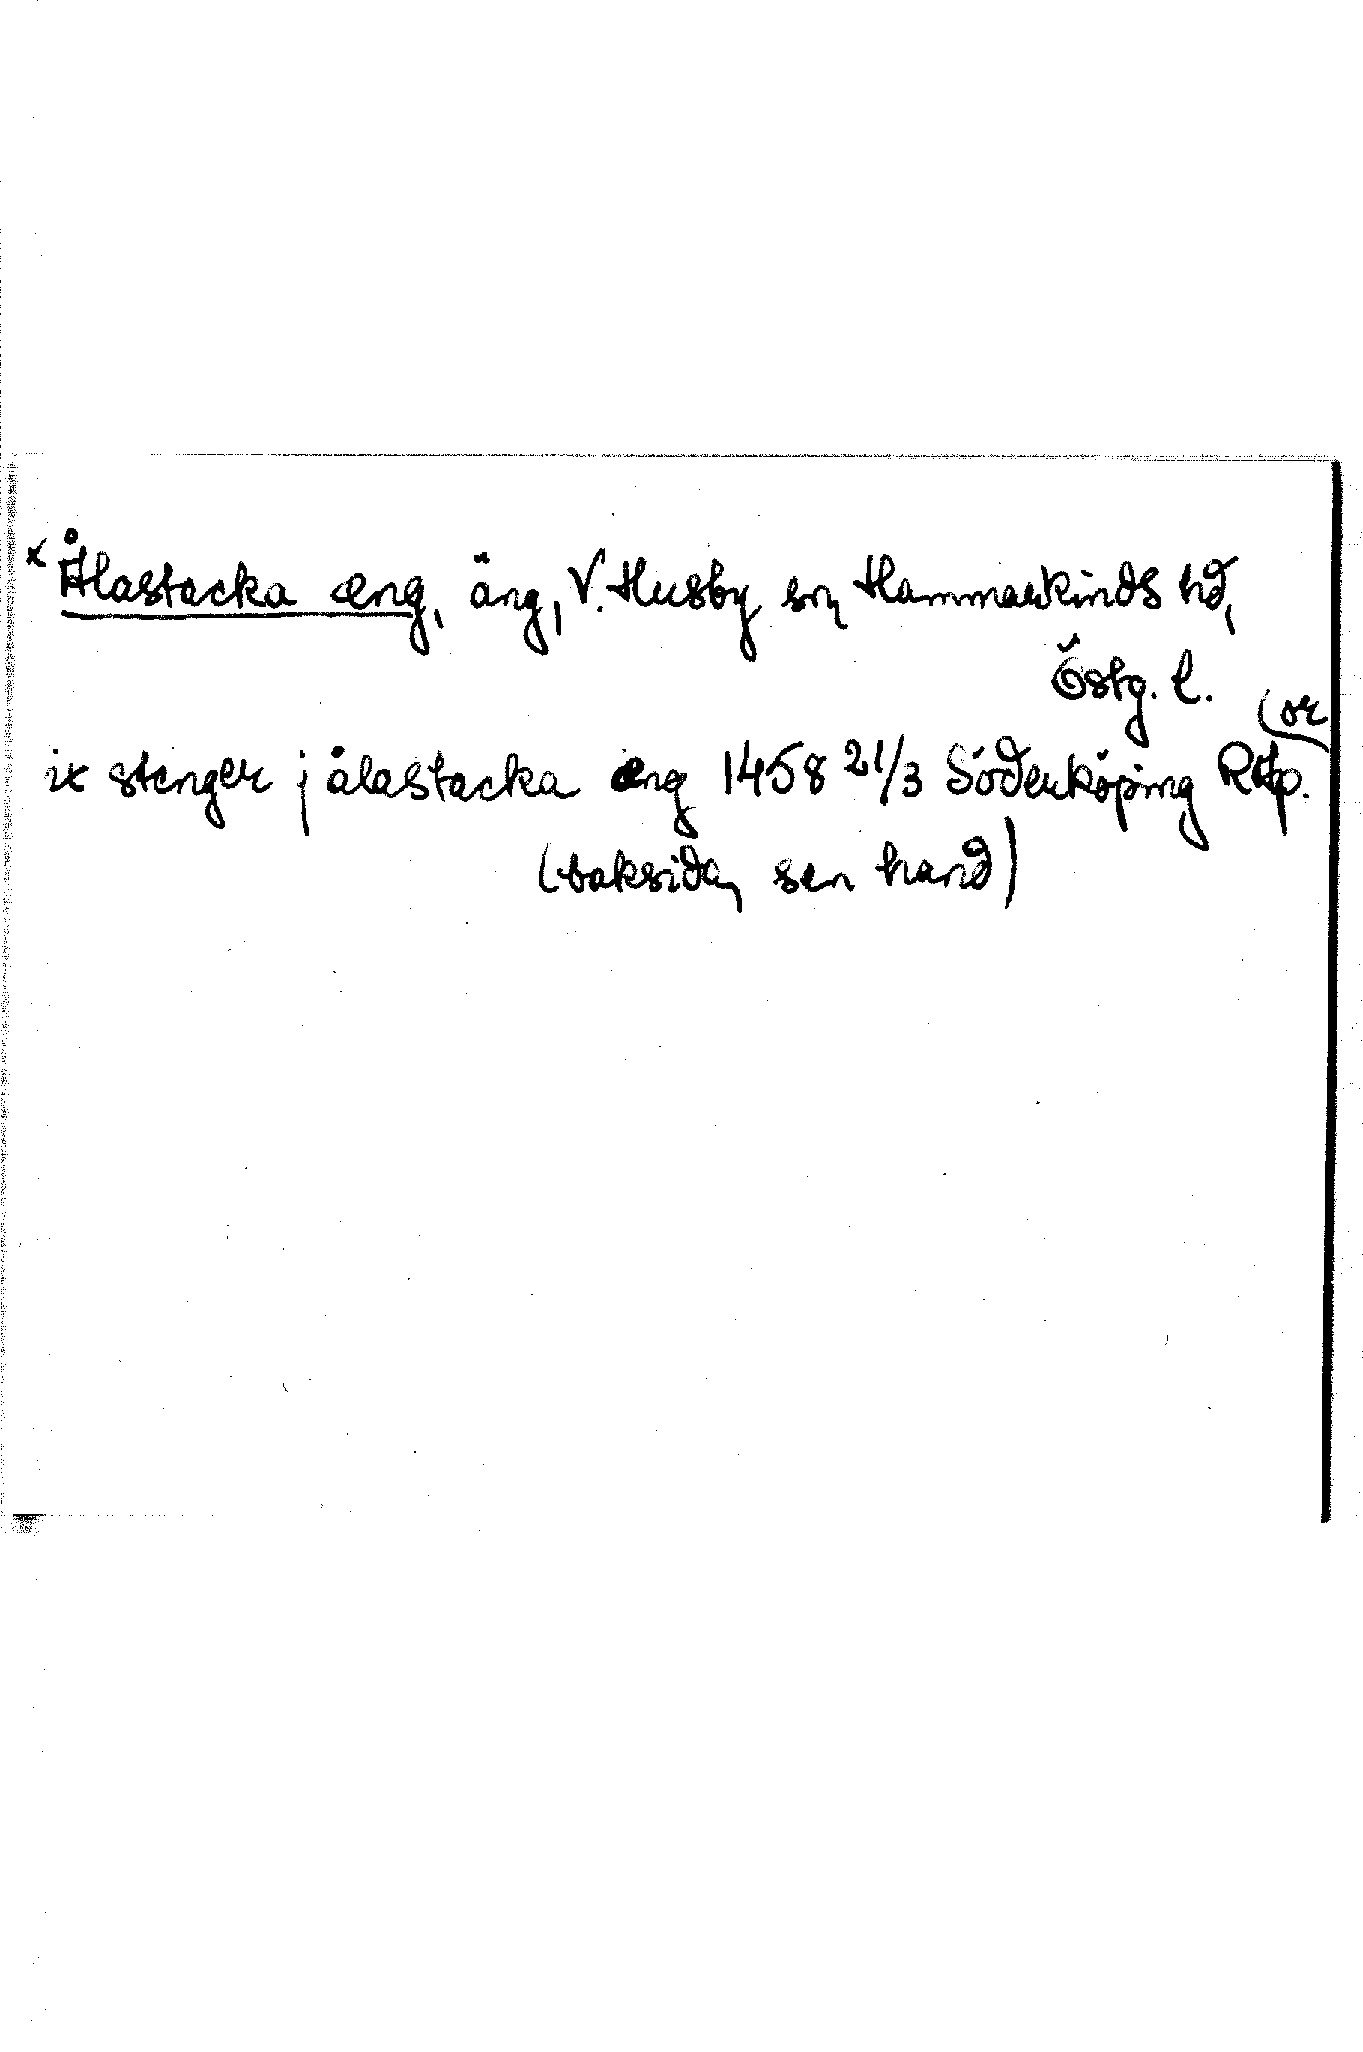 x Ålastacka æng, äng, V. Husby sn, Hammarkinds hd,
Östg. l.
ix stenger j ålastacka æng 1458 21/3 Söderköping RAp. (or
(baksida, sen hand)